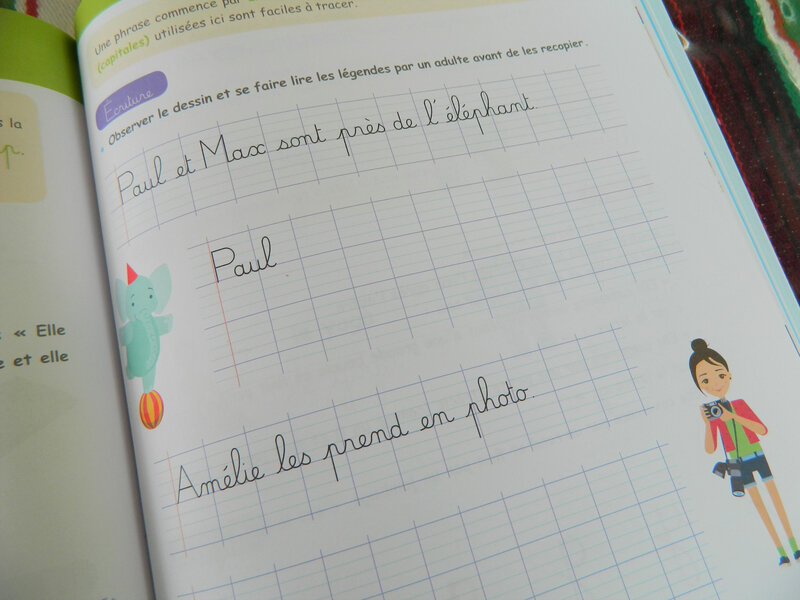 Une phrase commence par
(capitales) utilisées ici sont faciles à tracer.
Écriture
Observer le dessin et se faire lire les légendes par un adulte avant de les recopier.
Paul et Max sont près de l'éléphant.
Paul
Amélie les prend en photo.
la
p.
« Elle
et elle